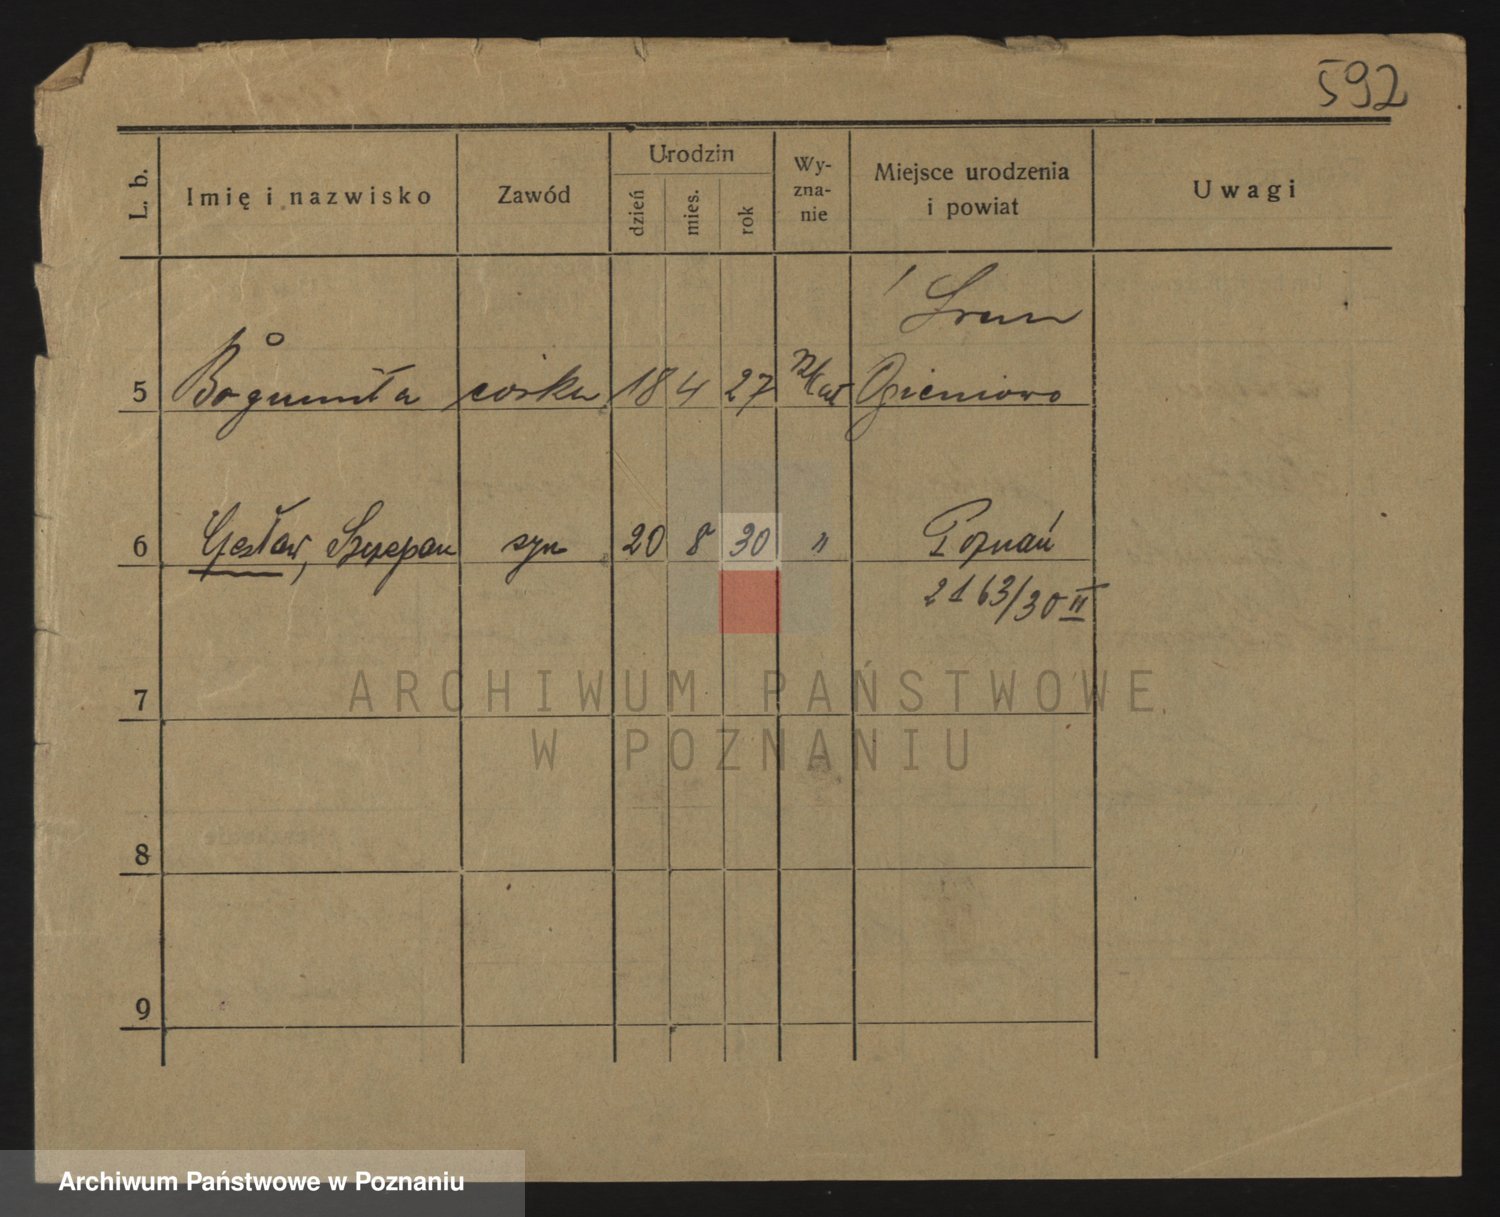 592
L. b.
Imię i nazwisko
Zawód
Urodzin
dzień
mies.
rok
Wy-
zna-
nie
Miejsce urodzenia
i powiat
Uwagi
Śrem
5 Bogumiła córka 18 4 27 rz kat
6 Czesław, Szczepan syn 20 8 30 " Poznań
2163/30 II
7
8
9
ARCHIWUM PAŃSTWOWE
W POZNANIU
Archiwum Państwowe w Poznaniu